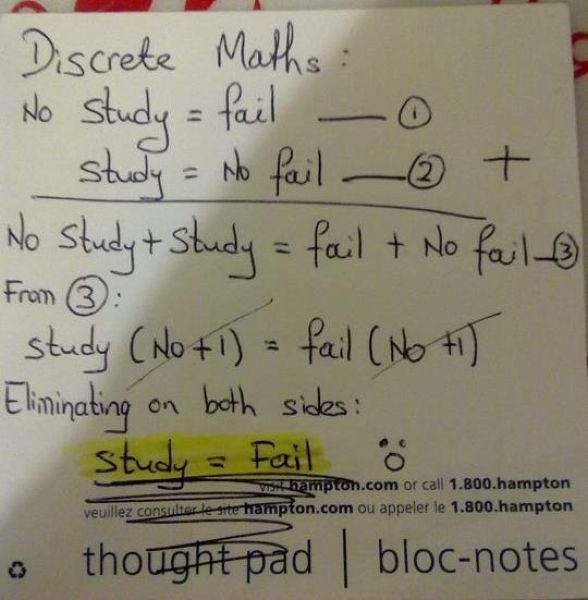 Discrete Maths :
No study = fail — ①
study = No fail — ② +
No Study + Study = fail + No fail - ③
From ③ :
study (No + 1) = fail (No + 1)
Eliminating on both sides :
study = Fail
visit hampton.com or call 1.800.hampton
veuillez consulter le site hampton.com ou appeler le 1.800.hampton
thought pad | bloc-notes